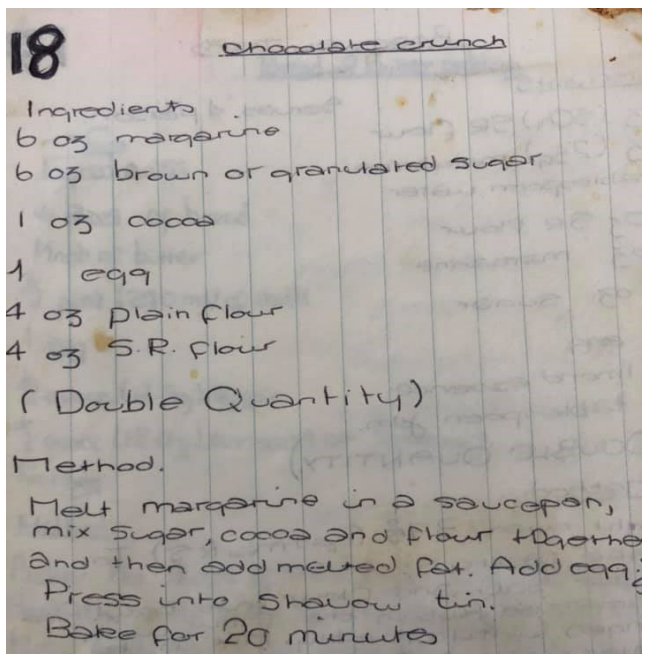 18
Chocolate crunch
Ingredients
6 oz margarine
6 oz brown or granulated sugar
1 oz cocoa
1 egg
4 oz plain flour
4 oz S.R. flour
(Double Quantity)
Method.
Melt margarine in a saucepan,
mix sugar, cocoa and flour togethe
and then add melted fat. Add egg.
Press into shallow tin.
Bake for 20 minutes